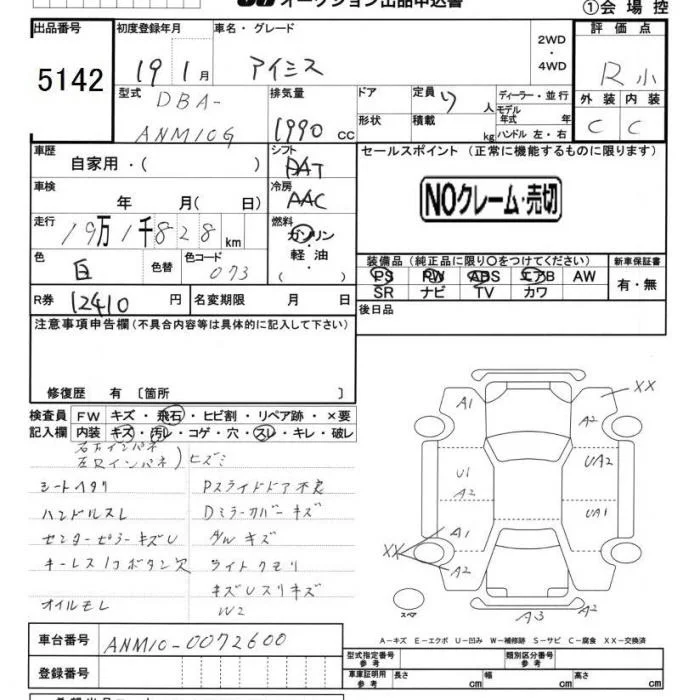 オークション出品申込書
①会場控
出品番号 初度登録年月 車名・グレード 2WD ・ 4WD 評価点
5142 19年1月 アイシス R小
型式 DBA- ANM10G 排気量 1990 cc ドア 形状 定員 7人 積載 kg ディーラー・並行 モデル年式 年 ハンドル 左・右 外装 内装
C C
車歴 自家用・( ) シフト DAT セールスポイント (正常に機能するものに限ります)
車検 年 月( 日) 冷房 AAC NOクレーム・売切
走行 19万1千828km 燃料 ガソリン・軽油 ( )
色 白 色替 色コード 073 装備品 (純正品に限り○をつけてください) 新車保証書
PS PW ABS エアB AW 有・無
SR ナビ TV カワ
R券 12410円 名変期限 月 日 後日品
注意事項申告欄(不具合内容等は具体的に記入して下さい)
修復歴 有 [箇所 ]
検査員 FW キズ・飛石・ヒビ割・リペア跡・×要
記入欄 内装 キズ・汚レ・コゲ・穴・スレ・キレ・破レ
右Fインパネ
左Rインパネ ) ヒズミ
シートヘタリ Pスライドドア不良
ハンドルスレ Dミラーカバーキズ
センターピラーキズU AWキズ
キーレス1コボタン欠 ライトクモリ
キズUスリキズ
オイルモレ W2
A1 A2 XX
U1 A2 UA2
A1 UA1
XX A2 A2
スペア A3
A-キズ E-エクボ U-凹み W-補修跡 S-サビ C-腐食 XX-交換済
車台番号 ANM10-0072600 型式指定番号 参考 類別区分番号 参考
登録番号 車庫証明用 参考 長さ cm 幅 cm 高さ cm